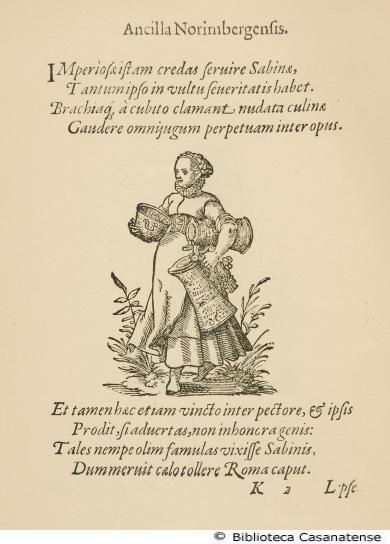 Ancilla Norimbergensis.
IMperiosæ istam credas seruire Sabinæ,
Tantum ipso in vultu seueritatis habet.
Brachiaq́; à cubito clamant nudata culinæ
Gaudere omnijugum perpetuam inter opus.
Et tamen hac etiam vincto inter pectore, & ipsis
Prodit, si aduertas, non inhonora genis:
Tales nempe olim famulas vixisse Sabinis,
Dum meruit cælo tollere Roma caput.
K 2 Lipse
© Biblioteca Casanatense